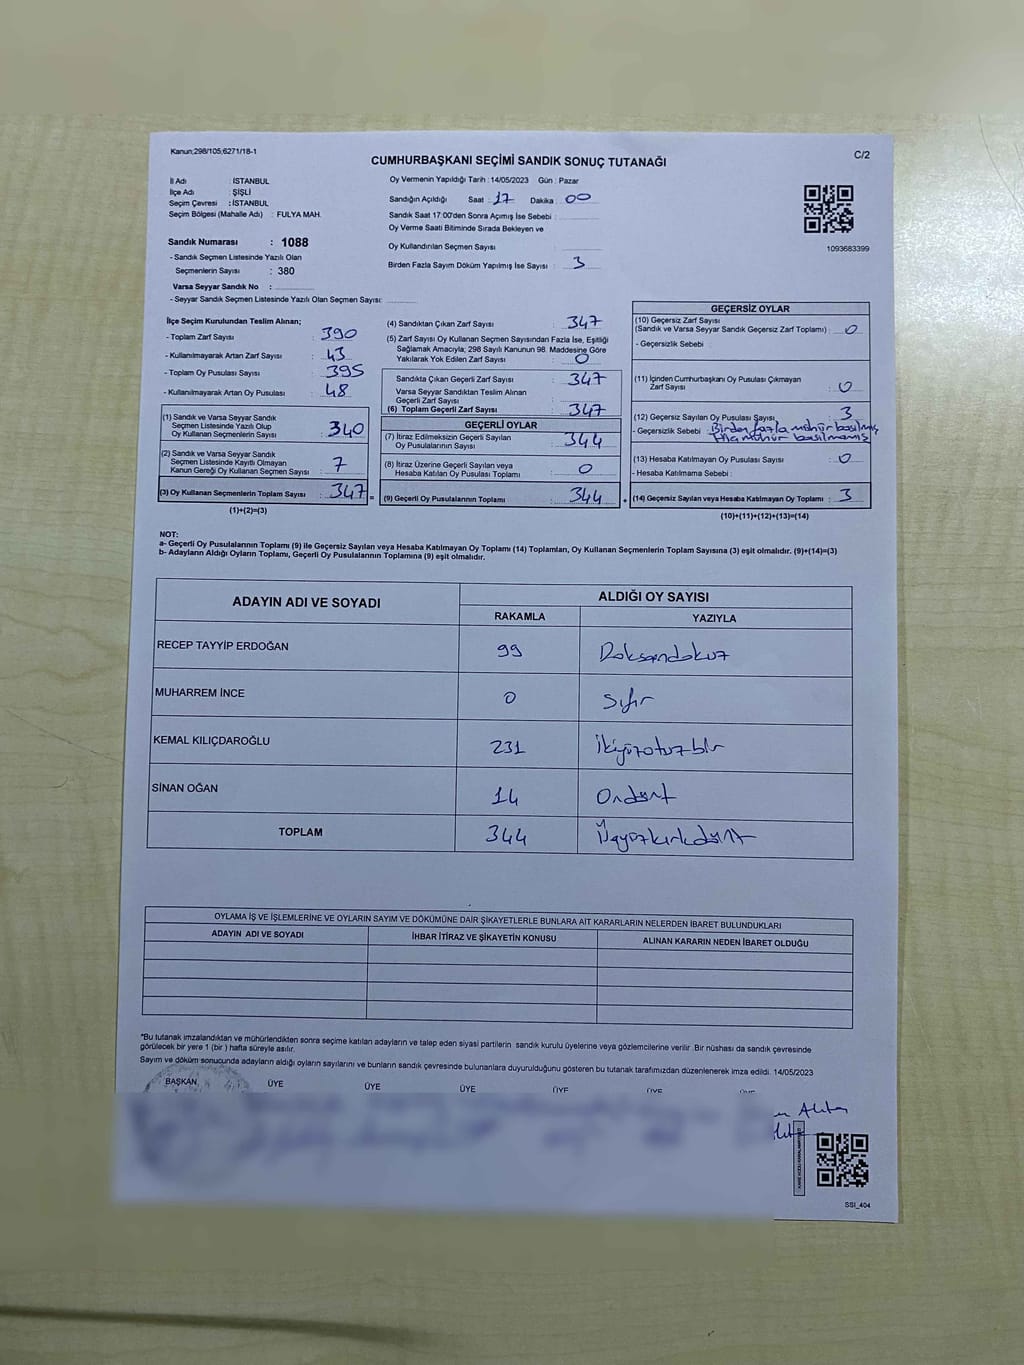 Kanun;298/105;6271/18-1
C/2
CUMHURBAŞKANI SEÇİMİ SANDIK SONUÇ TUTANAĞI
İl Adı : İSTANBUL
İlçe Adı : ŞİŞLİ
Seçim Çevresi : İSTANBUL
Seçim Bölgesi (Mahalle Adı) : FULYA MAH.
Sandık Numarası : 1088
- Sandık Seçmen Listesinde Yazılı Olan
Seçmenlerin Sayısı : 380
Varsa Seyyar Sandık No :
- Seyyar Sandık Seçmen Listesinde Yazılı Olan Seçmen Sayısı:
Oy Vermenin Yapıldığı Tarih : 14/05/2023 Gün : Pazar
Sandığın Açıldığı Saat : 17 Dakika : 00
Sandık Saat 17:00'den Sonra Açımış İse Sebebi :
Oy Verme Saati Bitiminde Sırada Bekleyen ve
Oy Kullandırılan Seçmen Sayısı :
Birden Fazla Sayım Döküm Yapılmış İse Sayısı : 3
1093683399
İlçe Seçim Kurulundan Teslim Alınan;
- Toplam Zarf Sayısı : 390
- Kullanılmayarak Artan Zarf Sayısı : 43
- Toplam Oy Pusulası Sayısı : 395
- Kullanılmayarak Artan Oy Pusulası : 48
(1) Sandık ve Varsa Seyyar Sandık
Seçmen Listesinde Yazılı Olup
Oy Kullanan Seçmenlerin Sayısı : 340
(2) Sandık ve Varsa Seyyar Sandık
Seçmen Listesinde Kayıtlı Olmayan
Kanun Gereği Oy Kullanan Seçmen Sayısı : 7
(3) Oy Kullanan Seçmenlerin Toplam Sayısı : 347 =
(1)+(2)=(3)
(4) Sandıktan Çıkan Zarf Sayısı : 347
(5) Zarf Sayısı Oy Kullanan Seçmen Sayısından Fazla İse, Eşitliği
Sağlamak Amacıyla; 298 Sayılı Kanunun 98. Maddesine Göre
Yakılarak Yok Edilen Zarf Sayısı : 0
Sandıkta Çıkan Geçerli Zarf Sayısı : 347
Varsa Seyyar Sandıktan Teslim Alınan
Geçerli Zarf Sayısı :
(6) Toplam Geçerli Zarf Sayısı : 347
GEÇERLİ OYLAR
(7) İtiraz Edilmeksizin Geçerli Sayılan
Oy Pusulalarının Sayısı : 344
(8) İtiraz Üzerine Geçerli Sayılan veya
Hesaba Katılan Oy Pusulası Toplamı : 0
(9) Geçerli Oy Pusulalarının Toplamı : 344 +
GEÇERSİZ OYLAR
(10) Geçersiz Zarf Sayısı
(Sandık ve Varsa Seyyar Sandık Geçersiz Zarf Toplamı) : 0
- Geçersizlik Sebebi :
(11) İçinden Cumhurbaşkanı Oy Pusulası Çıkmayan
Zarf Sayısı : 0
(12) Geçersiz Sayılan Oy Pusulası Sayısı : 3
- Geçersizlik Sebebi : Birden fazla mühür basılmış
Hiç mühür basılmamış
(13) Hesaba Katılmayan Oy Pusulası Sayısı : 0
- Hesaba Katılmama Sebebi :
(14) Geçersiz Sayılan veya Hesaba Katılmayan Oy Toplamı : 3
(10)+(11)+(12)+(13)=(14)
NOT:
a- Geçerli Oy Pusulalarının Toplamı (9) ile Geçersiz Sayılan veya Hesaba Katılmayan Oy Toplamı (14) Toplamları, Oy Kullanan Seçmenlerin Toplam Sayısına (3) eşit olmalıdır. (9)+(14)=(3)
b- Adayların Aldığı Oyların Toplamı, Geçerli Oy Pusulalarının Toplamına (9) eşit olmalıdır.
ADAYIN ADI VE SOYADI ALDIĞI OY SAYISI
RAKAMLA YAZIYLA
RECEP TAYYİP ERDOĞAN 99 Doksandokuz
MUHARREM İNCE 0 Sıfır
KEMAL KILIÇDAROĞLU 231 İkiyüzotuzbir
SİNAN OĞAN 14 Ondört
TOPLAM 344 Üçyüzkırkdört
OYLAMA İŞ VE İŞLEMLERİNE VE OYLARIN SAYIM VE DÖKÜMÜNE DAİR ŞİKAYETLERLE BUNLARA AİT KARARLARIN NELERDEN İBARET BULUNDUKLARI
ADAYIN ADI VE SOYADI İHBAR İTİRAZ VE ŞİKAYETİN KONUSU ALINAN KARARIN NEDEN İBARET OLDUĞU
*Bu tutanak imzalandıktan ve mühürlendikten sonra seçime katılan adayların ve talep eden siyasi partilerin sandık kurulu üyelerine veya gözlemcilerine verilir .Bir nüshası da sandık çevresinde
görülecek bir yere 1 (bir ) hafta süreyle asılır.
Sayım ve döküm sonucunda adayların aldığı oyların sayılarını ve bunların sandık çevresinde bulunanlara duyurulduğunu gösteren bu tutanak tarafımızdan düzenlenerek imza edildi. 14/05/2023
BAŞKAN ÜYE ÜYE ÜYE ÜYE ÜYE ÜYE
SSI_404